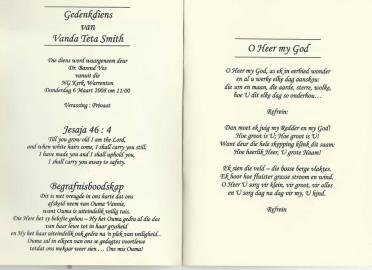 Gedenkdiens
van
Vanda Teta Smith
Die diens word waargeneem deur
Dr. Barend Vos
vanuit die
NG Kerk, Warrenton
Donderdag 6 Maart 2008 om 11:00
Verassing : Privaat
Jesaja 46 : 4
Till you grow old I am the Lord,
and when white hairs come, I shall carry you still;
I have made you and I shall uphold you,
I shall carry you away to safety.
Begrafnisboodskap
Dit is met vreugde in ons harte dat ons
afskeid neem van Ouma Vannie,
want Ouma is uiteindelik veilig tuis.
Die Here het sy belofte gehou – Hy het Ouma gedra al die dae
van haar lewe tot in haar grysheid
en Hy het haar uiteindelik ook gedra na 'n plek van veiligheid...
Ouma sal in elkeen van ons se gedagtes voortlewe
totdat ons mekaar weer sien … Ons mis Ouma!
O Heer my God
O Heer my God, as ek in eerbied wonder
en al u werke elke dag aanskou:
die son en maan, die aarde, sterre, wolke,
hoe U dit elke dag so onderhou…
Refrein:
Dan moet ek juig my Redder en my God!
Hoe groot is U; Hoe groot is U!
Want deur die hele skepping klink dit saam:
Hoe heerlik Heer, U grote Naam!
Ek sien die veld – die bosse berge vlaktes.
Ek hoor hoe fluister grasse stroom en wind.
O Heer U sorg vir klein, vir groot, vir alles
en U sorg dag na dag vir my, U kind.
Refrein